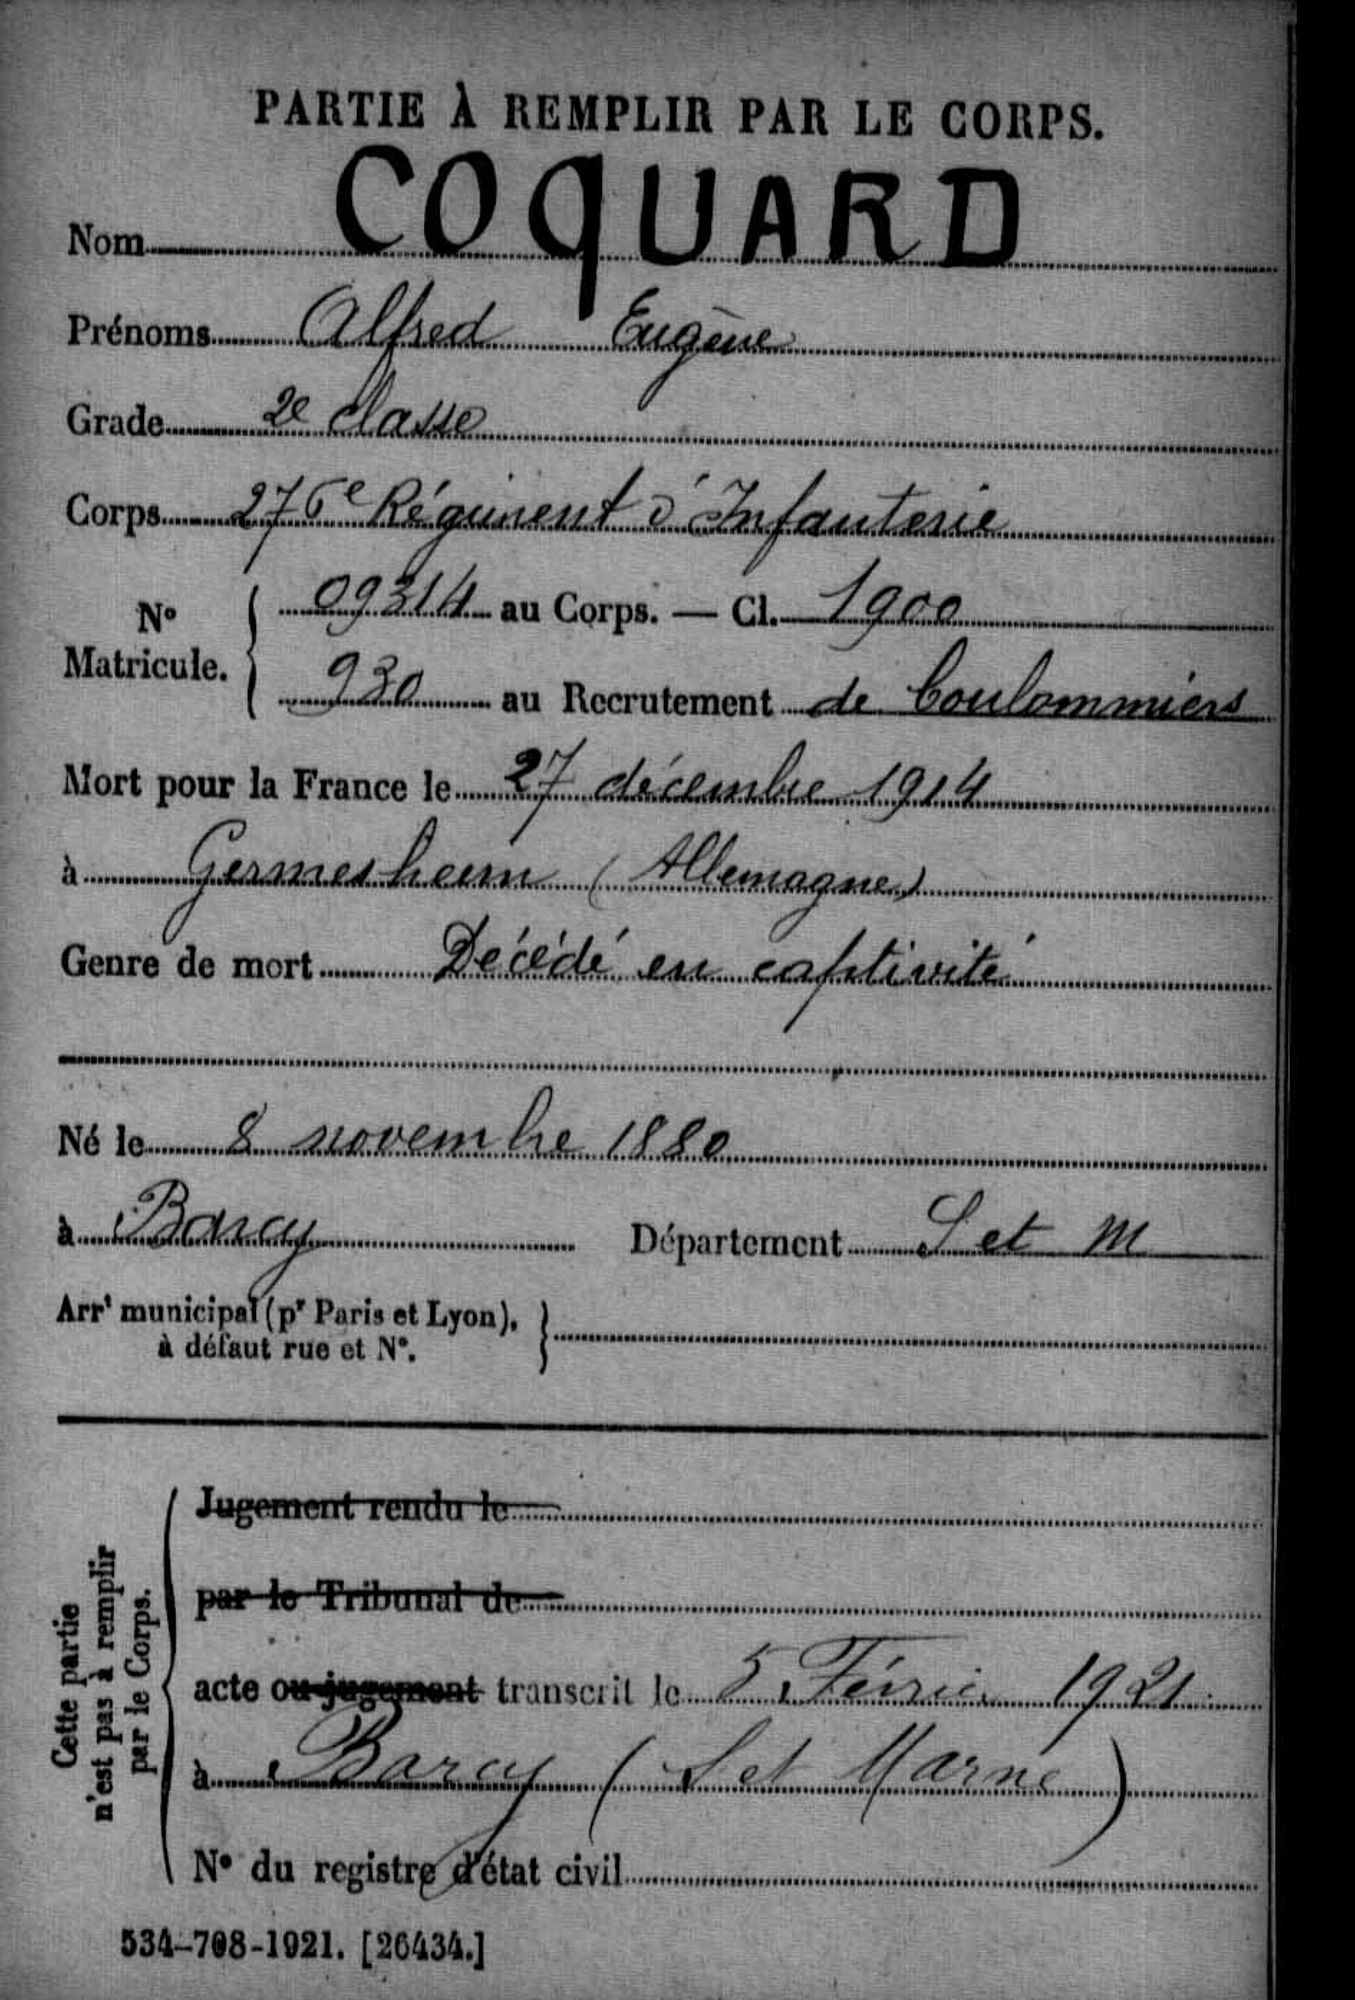 PARTIE À REMPLIR PAR LE CORPS.
Nom COQUARD
Prénoms Alfred Eugène
Grade 2e classe
Corps 276e Régiment d'Infanterie
No Matricule. { 09314 au Corps. — Cl. 1900
930 au Recrutement de Coulommiers
Mort pour la France le 27 décembre 1914
à Germesheim (Allemagne)
Genre de mort Décédé en captivité
Né le 8 novembre 1880
à Barcy Département S et M
Arrt municipal (pr Paris et Lyon), }
à défaut rue et No.
Cette partie
n'est pas à remplir
par le Corps.
Jugement rendu le
par le Tribunal de
acte ou jugement transcrit le 5 Février 1921
à Barcy (S et Marne)
No du registre d'état civil
534-708-1921. [26434.]